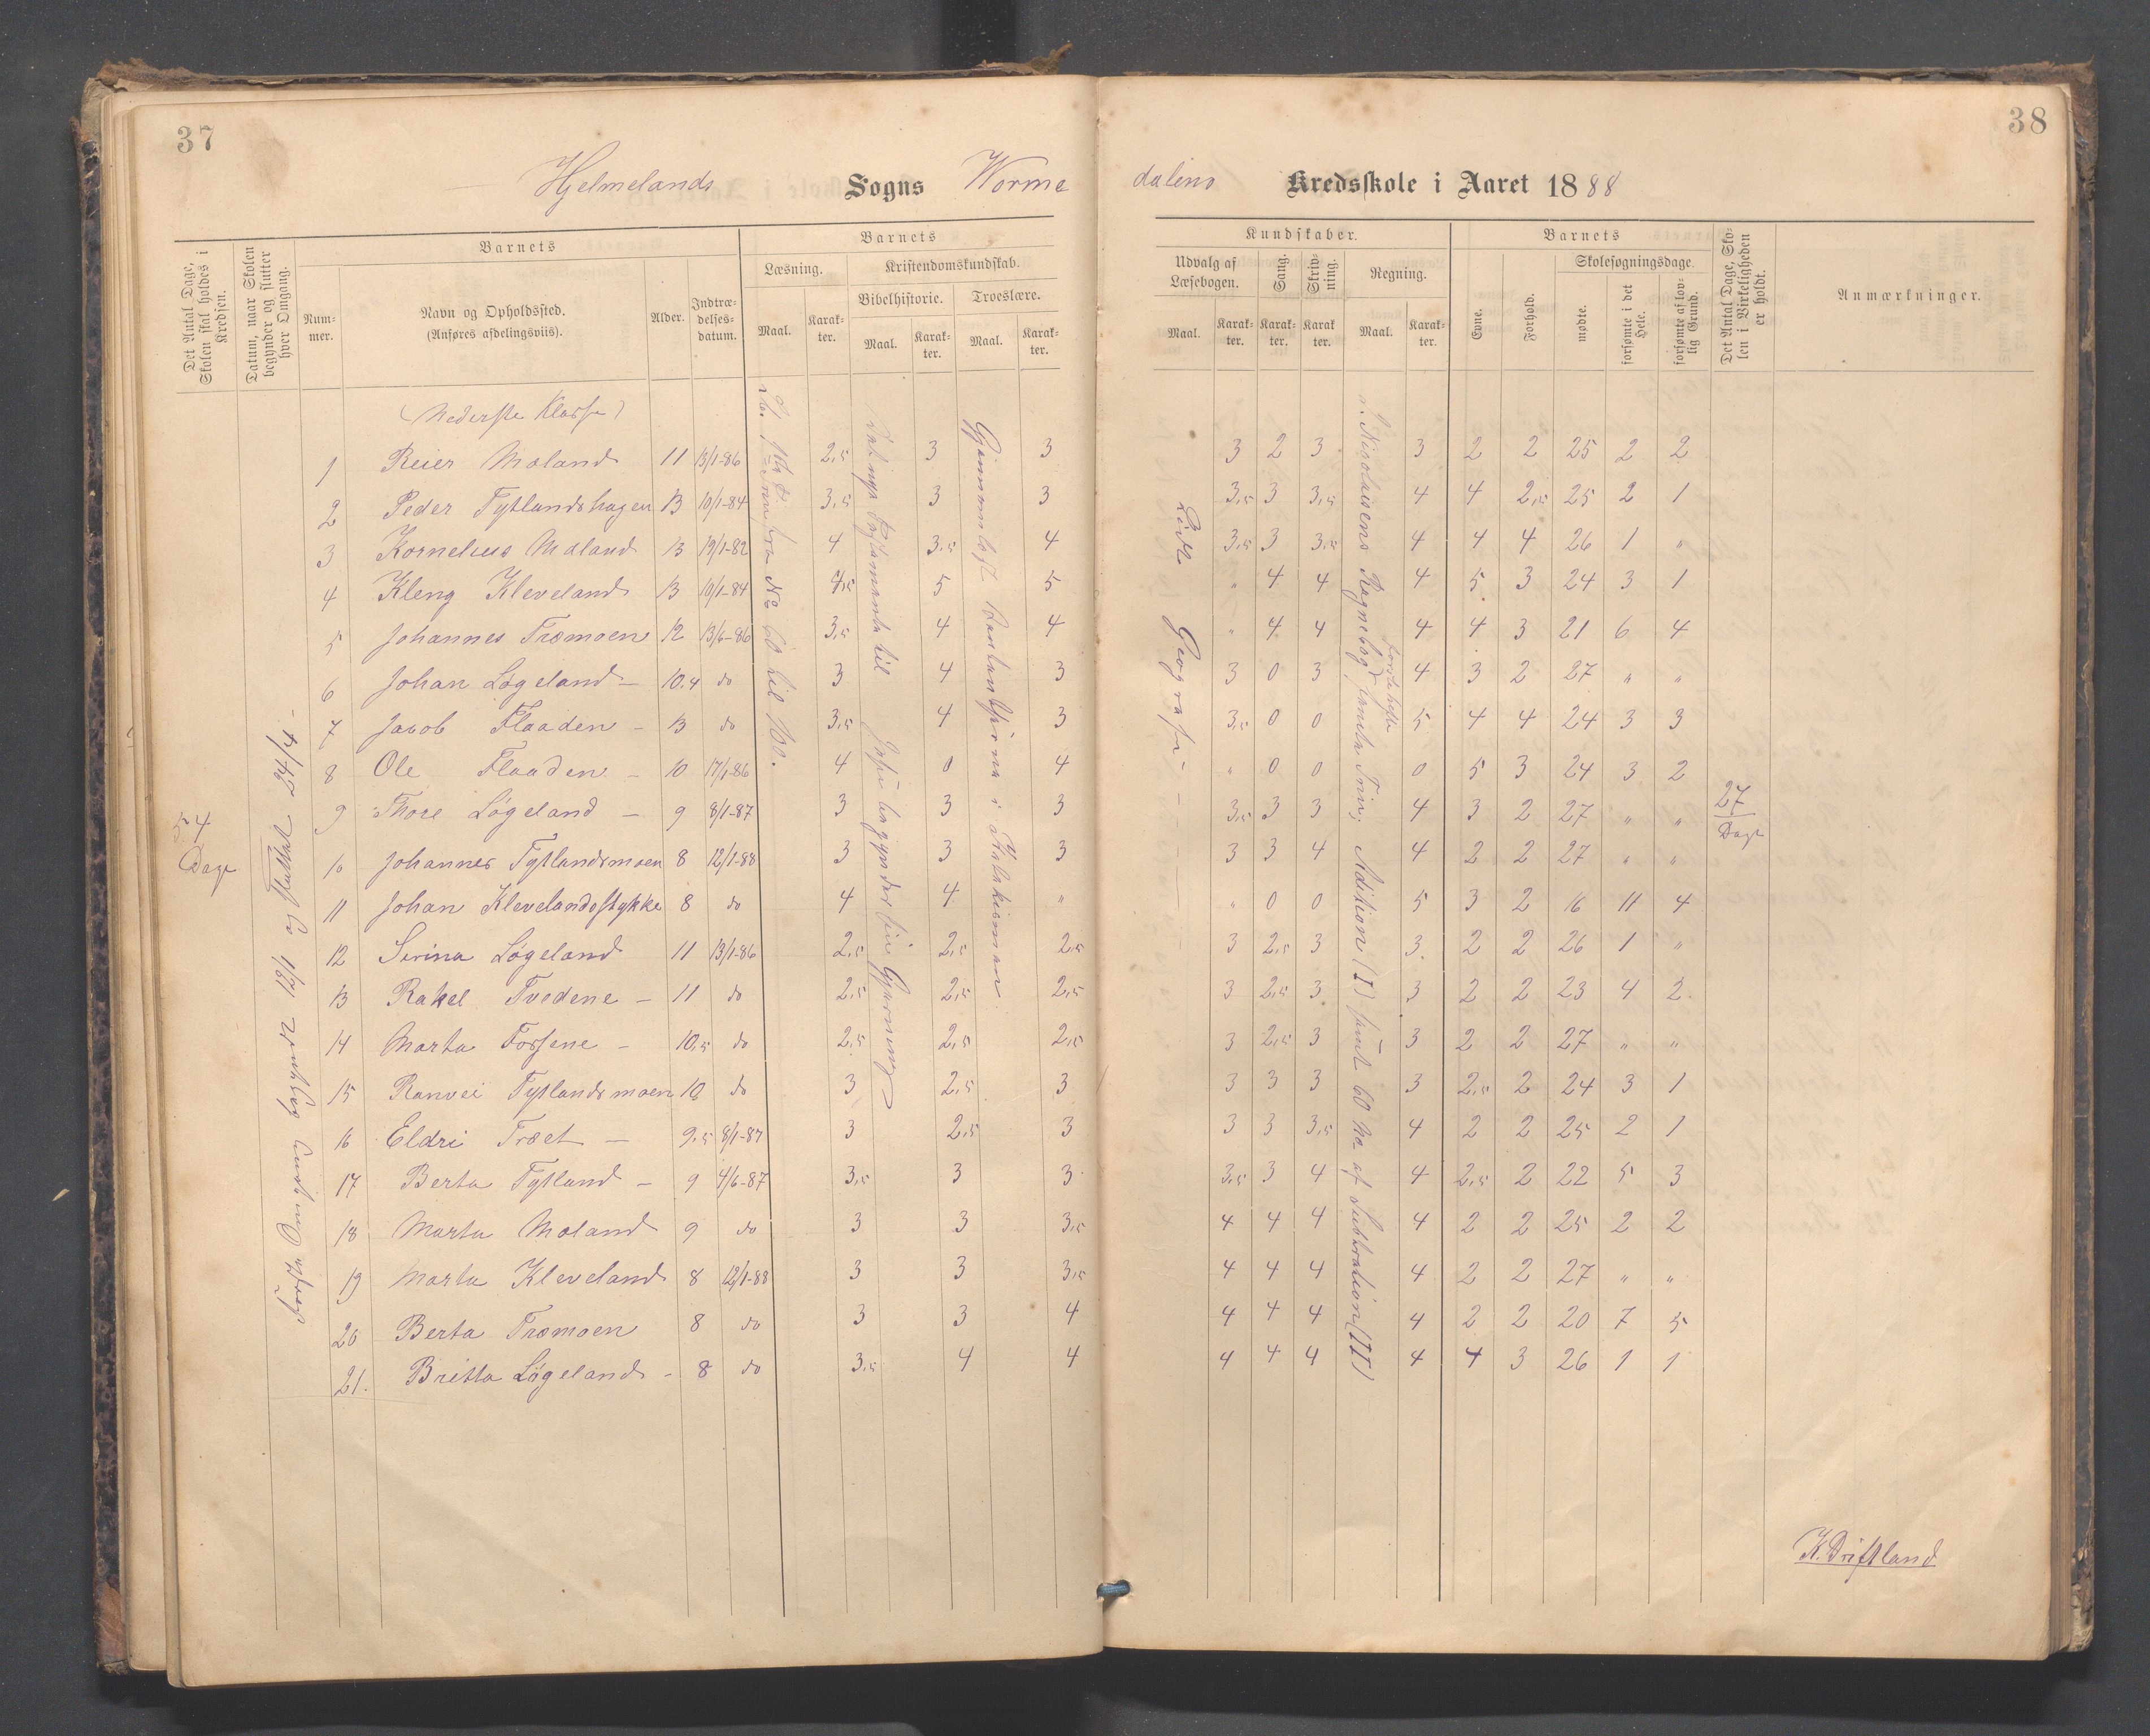 37
38
Hjelmelands Sogns Worme dalens Kredsskole i Aaret 1888
Det Antal Dage, Skolen skal holdes i Kredsen.
Datum, naar Skolen begynder og slutter hver Omgang.
Barnets
Nummer.
Navn og Opholdssted.
(Anføres afdelingsviis).
Alder.
Indtrædelsesdatum.
Barnets
Læsning.
Kristendomskundskab.
Bibelhistorie.
Troeslære.
Maal.
Karakter.
Maal.
Karakter.
Maal.
Karakter.
Kundskaber.
Udvalg af Læsebogen.
Sang.
Skrivning.
Regning.
Maal.
Karakter.
Karakter.
Karakter.
Maal.
Karakter.
Barnets
Evne.
Forhold.
Skolesøgningsdage.
mødte.
forsømte i det Hele.
forsømte af lovlig Grund.
Det Antal Dage, Skolen i Virkeligheden er holdt.
Anmærkninger.
(Nederste Klasse)
1 Reier Moland 11 13/1-86 2,5 3 3 3 2 3 3 2 2 25 2 2
2 Peder Tytlandshagen 13 10/1-84 3,5 3 3 3,5 3 3,5 4 4 2,5 25 2 1
3 Kornelius Moland 13 19/1-82 4 3,5 4 3,5 3 3,5 4 4 4 26 1 "
4 Kleng Kleveland 13 10/1-84 4,5 5 5 " 4 4 4 5 3 24 3 1
5 Johannes Træmoen 12 13/6-86 3,5 4 4 " 4 4 4 4 3 21 6 4
6 Johan Løgeland - 10,4 do 3 4 3 3 0 3 4 3 2 27 " "
7 Jacob Flaaden - 13 do 3,5 4 3 3,5 0 0 5 4 4 24 3 3
8 Ole Flaaden - 10 17/1-86 4 0 4 " 0 0 0 5 3 24 3 2
9 Thore Løgeland - 9 8/1-87 3 3 3 3,5 3 3 4 3 2 27 " "
10 Johannes Tytlandsmoen 8 12/1-88 3 3 3 3 3 4 4 2 2 27 " "
11 Johan Klevelandsstykke 8 do 4 4 " " 0 0 5 3 2 16 11 4
12 Serina Løgeland 11 13/1-86 2,5 2,5 2,5 3 2,5 3 3 2 2 26 1 "
13 Rakel Tvedene - 11 do 2,5 2,5 2,5 3 2,5 3 3 2 2 23 4 2
14 Marta Fossene - 10,5 do 2,5 2,5 2,5 3 2,5 3 3 2 2 27 " "
15 Ranvei Tytlandsmoen 10 do 3 2,5 3 3 3 3 3 2,5 2 24 3 1
16 Eldri Træet - 9,5 8/1-87 3 2,5 3 3 3 3,5 4 2 2 25 2 1
17 Berta Tytland - 9 4/6-87 3,5 3 3 3,5 3 4 4 2,5 2 22 5 3
18 Marta Moland 9 do 3 3 3,5 4 4 4 4 2 2 25 2 2
19 Marta Kleveland 8 12/1-88 3 3 3,5 4 4 4 4 2 2 27 " "
20 Berta Træmoen 8 do 3 3 4 4 4 4 4 2 2 20 7 5
21. Britta Løgeland - 8 do 3,5 4 4 4 4 4 4 4 3 26 1 1
54 Dage
Første Omgang begyndt 12/1 og sluttet 24/4 -
fra No 60 til 100.
Det nye Testamente til Jesu begynder sin Gjerning
Gjennemlæst Barnelærdommen i Katekismen
Lidt Geografi - - -
Nikolaisens Regnebog første hefte samt Adition (I) samt 60 No af Subtraktion (II)
27 Dage
K. Driftland